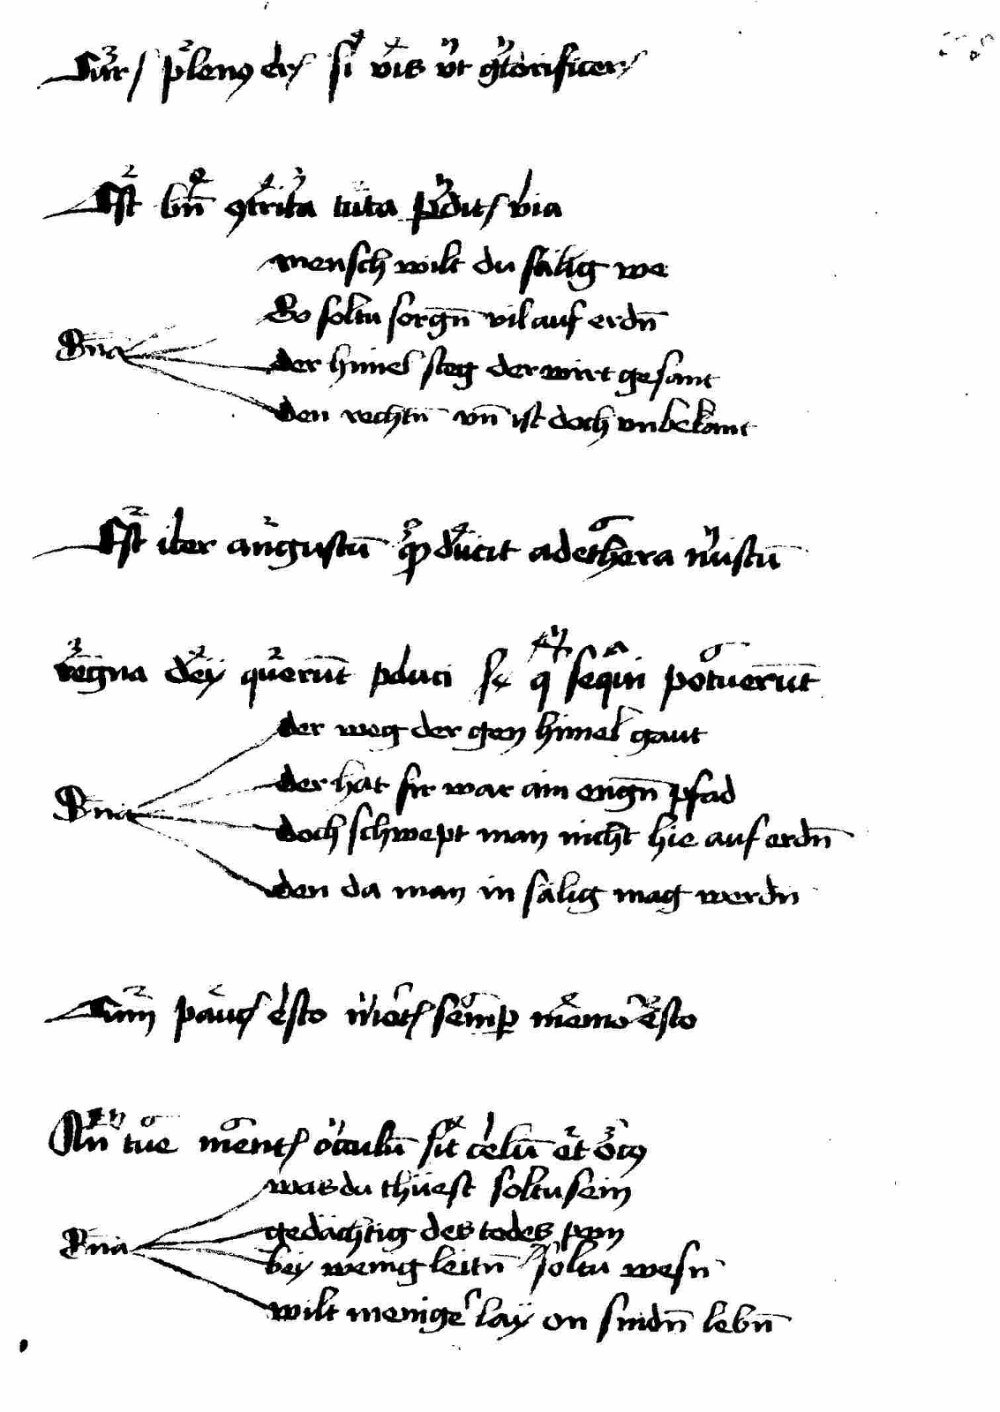 Cur/ plenus eris si vis ut glorificeris
Est bn̄ ꝯtrita tuta perdit/ via
mensch wilt du sälig we
So soltu sorgn̄ vil auf erdn̄
der himel steg der wirt gesant
Rn̄a
den rechtn̄ vn̄ ist doch vnbekant
Est iter angustū qd ducit ad ethera iustū
regna dey querūt pauci qͥ sequi potuerūt
der weg der gen himel gaut
der hat fir war ain engn̄ pfad
Rn̄a
doch schwept man nicht hie auf erdn̄
den da man in sälig mag werdn̄
Cum paucis esto mortis semꝑ memor esto
An̄ tue mentis occulū sit celū et orcꝰ
was du thüest soltu sein
gedächtig des todes pein
Rn̄a
bey wenig leitn̄ soltu wesn̄
wilt meniger lay on sindn̄ lebn̄